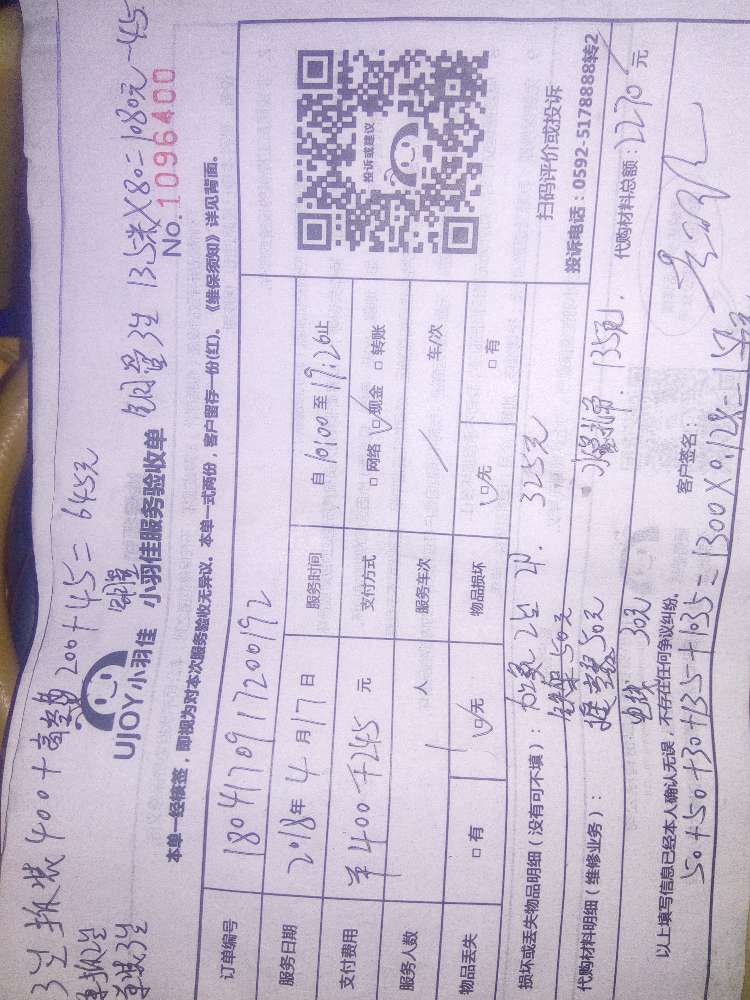 3台拆装400+高空费200+45=645元
单拆2台
单装3台
铜管3台 13.5米×80=1080元-45
UJOY小羽佳 小羽佳服务验收单
No.1096400
本单一经核签，即视为对本次服务验收无异议。本单一式两份，客户留存一份(红)。《维保须知》详见背面。
订单编号 1804170917200192
服务日期 2018年4月17日 服务时间 自10:00至19:26止
支付费用 ¥400+245元 支付方式 □网络 ☑现金 □转账
服务人数 人 服务车次 / 车/次
物品丢失 □有 ☑无 物品损坏 ☑无 □有
损坏或丢失物品明细（没有可不填）：加氟2台 325元
代购材料明细（维修业务）：
50元
50元
电线 30元
135元
代购材料总额：2270元
以上填写信息已经本人确认无误，不存在任何争议纠纷。
客户签名：
50+50+30+135+1035=1300×0.12%=
投诉或建议
扫码评价或投诉
投诉电话：0592-5178888转2